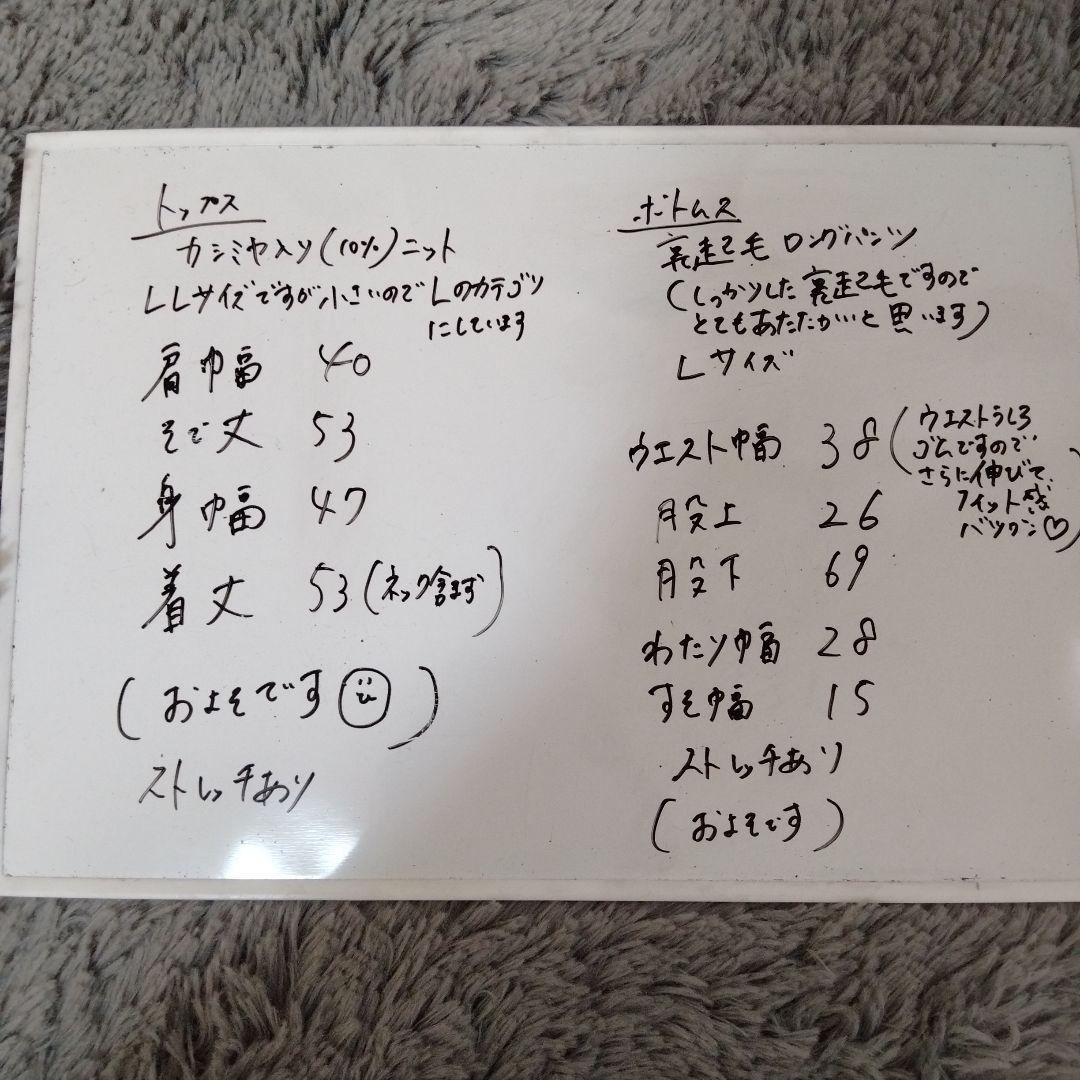 トップス
カシミヤ入り(10%)ニット
LLサイズですが小さいのでLのカテゴリ
にしています
肩巾幅 40
そで丈 53
身巾幅 47
着丈 53(ネック含まず)
(およそです)
ストレッチあり
ボトムス
裏起毛 ロングパンツ
(しっかりした裏起毛ですので
とてもあたたかいと思います)
Lサイズ
ウエスト幅 38(ウエストうしろ
ゴムですので
さらに伸びて、
フィット感
バツグン♡)
股上 26
股下 69
わたり幅 28
すそ幅 15
ストレッチあり
(およそです)